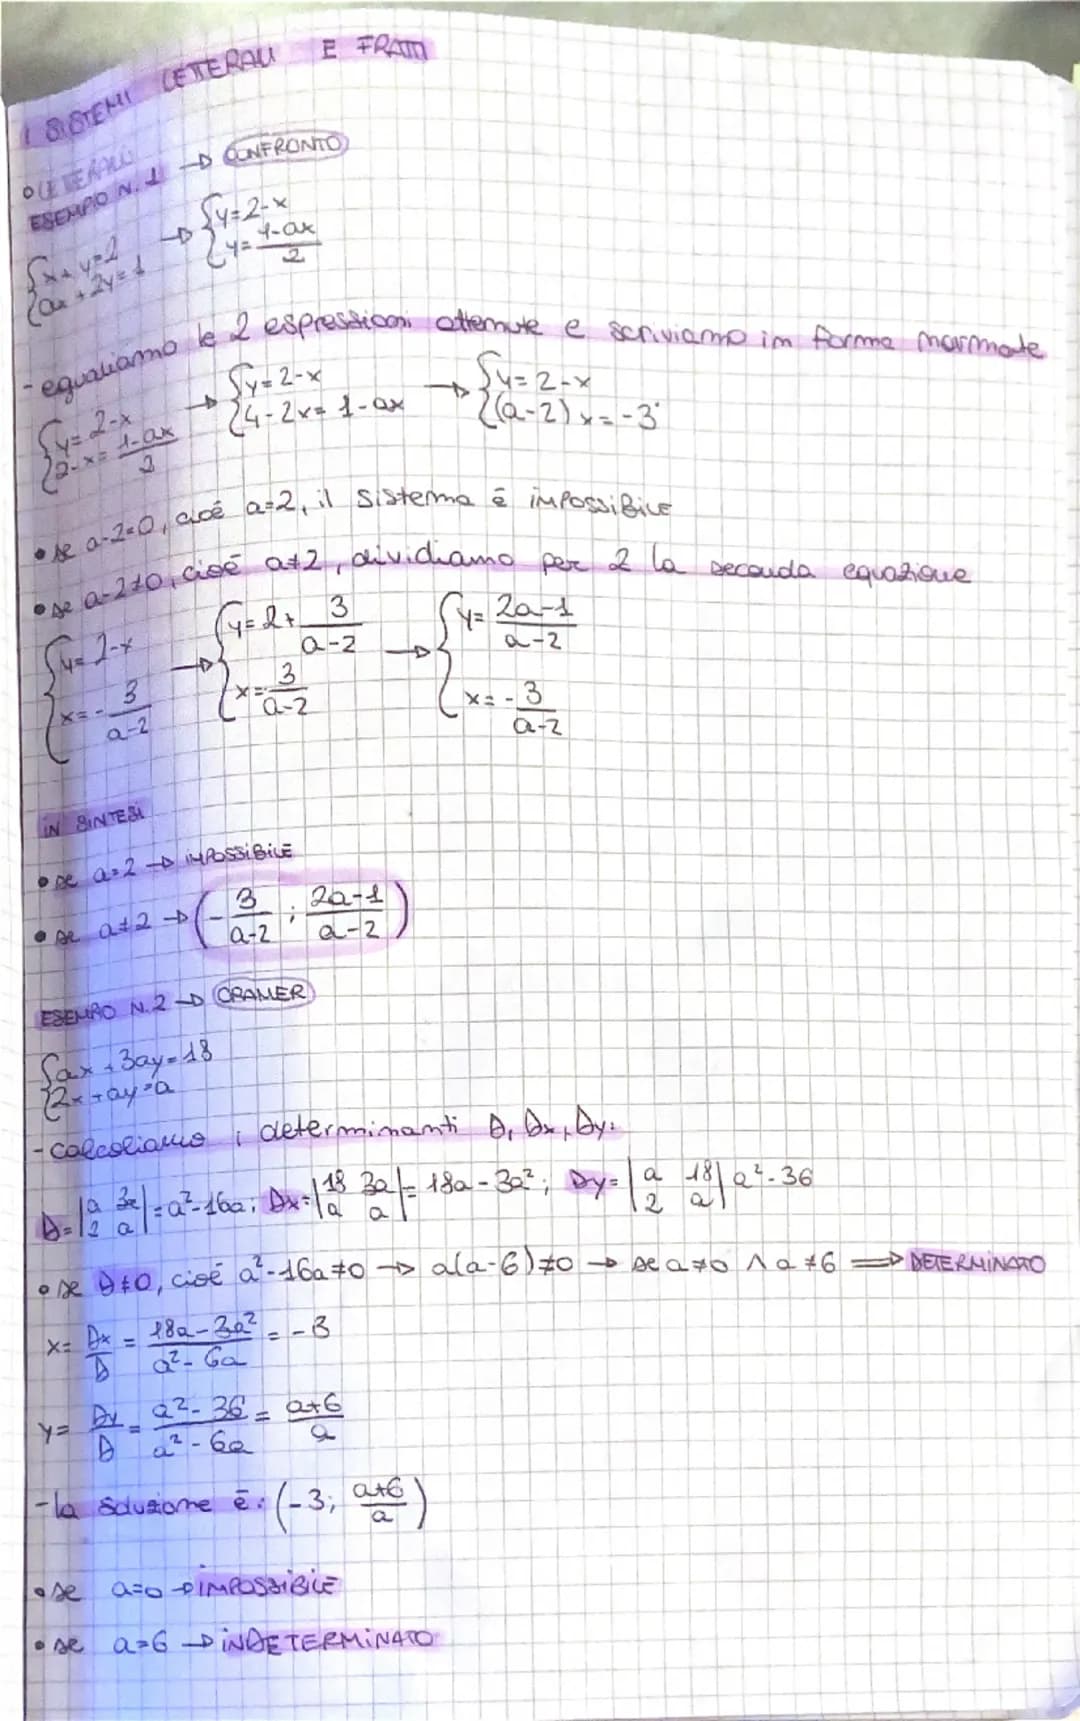 I SISTEMI LETTERALI E FRATTI
• LETTERALI
ESEMPIO N. 1 → CONFRONTO
{x + y = 2 {ax + 2y = 1 → {y = 2-x {y = 1-ax/2
- eguagliamo le 2 espressioni ottenute e scriviamo in forma normale
{y = 2-x {2-x = 1-ax/2 → {y = 2-x {4-2x = 1-ax → {y = 2-x {(a-2)x = -3
• se a-2=0, cioè a=2, il sistema è impossibile
• se a-2≠0, cioè a≠2, dividiamo per 2 la seconda equazione
{y = 2-x {x = - 3/a-2 → {y = 2 + 3/a-2 {x = - 3/a-2 → {y = 2a-1/a-2 {x = - 3/a-2
IN SINTESI
• se a=2 → IMPOSSIBILE
• se a≠2 → (- 3/a-2 ; 2a-1/a-2)
ESEMPIO N.2 → CRAMER
{ax + 3ay = 18
{2x + ay = a
- calcoliamo i determinanti D, Dx, Dy:
D = |a 3a| |2 a| = a²-16a; Dx = |18 3a| |a a| = 18a - 3a²; Dy = |a 18| |2 a| a²-36
• se D≠0, cioè a²-16a≠0 → a(a-6)≠0 → se a≠0 ∧ a≠6 ⟹ DETERMINATO
x = Dx/D = 18a-3a²/a²-6a = -3
y = Dy/D = a²-36/a²-6a = a+6/a
- la soluzione è: (-3; a+6/a)
• se a=0 → IMPOSSIBILE
• se a=6 → INDETERMINATO